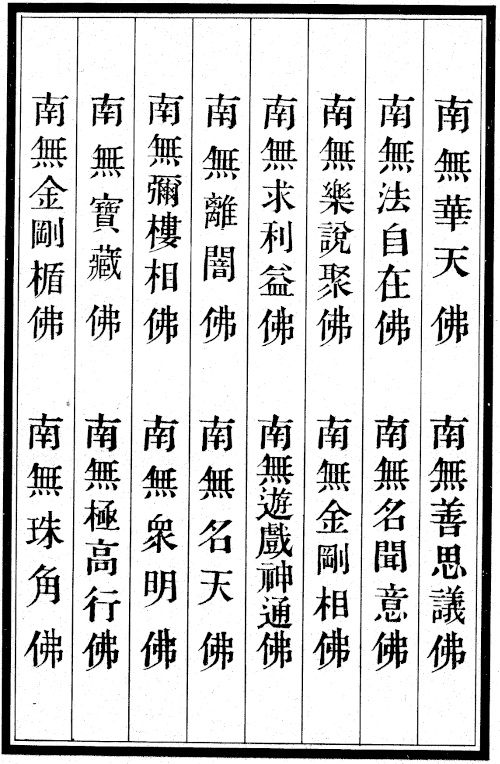 南無華天佛
南無善思議佛
南無法自在佛
南無名聞意佛
南無樂說聚佛
南無金剛相佛
南無求利益佛
南無遊戲神通佛
南無離闇佛
南無名天佛
南無彌樓相佛
南無眾明佛
南無寶藏佛
南無極高行佛
南無金剛楯佛
南無珠角佛